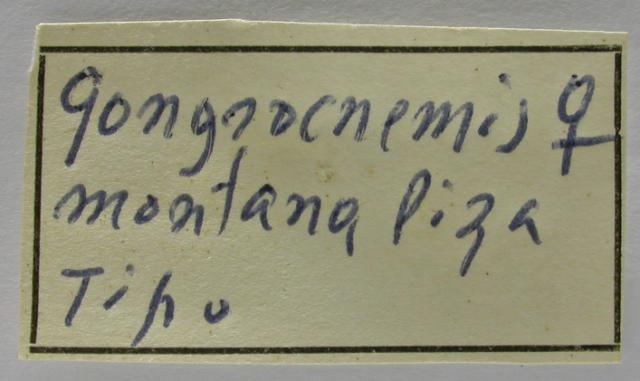 Gongrocnemis ♀
montana Piza
Tipo